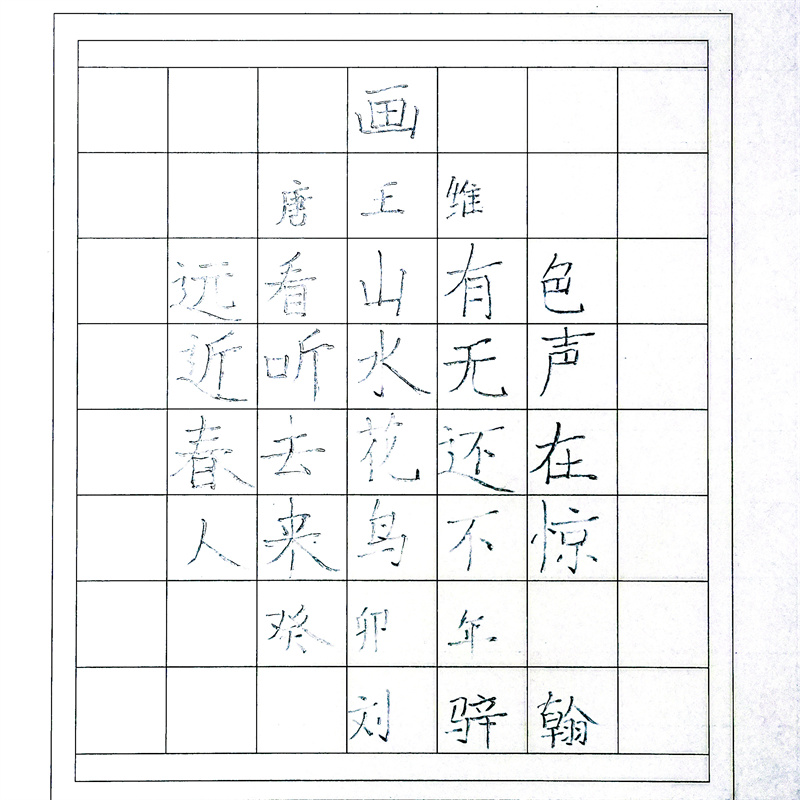 画
唐 王 维
远看山有色
近听水无声
春去花还在
人来鸟不惊
癸卯年
刘骍翰